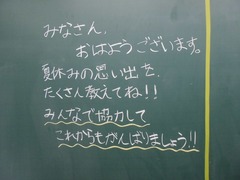 みなさん、
おはようございます。
夏休みの思い出を、
たくさん教えてね!!
みんなで協力して
これからもがんばりましょう!!